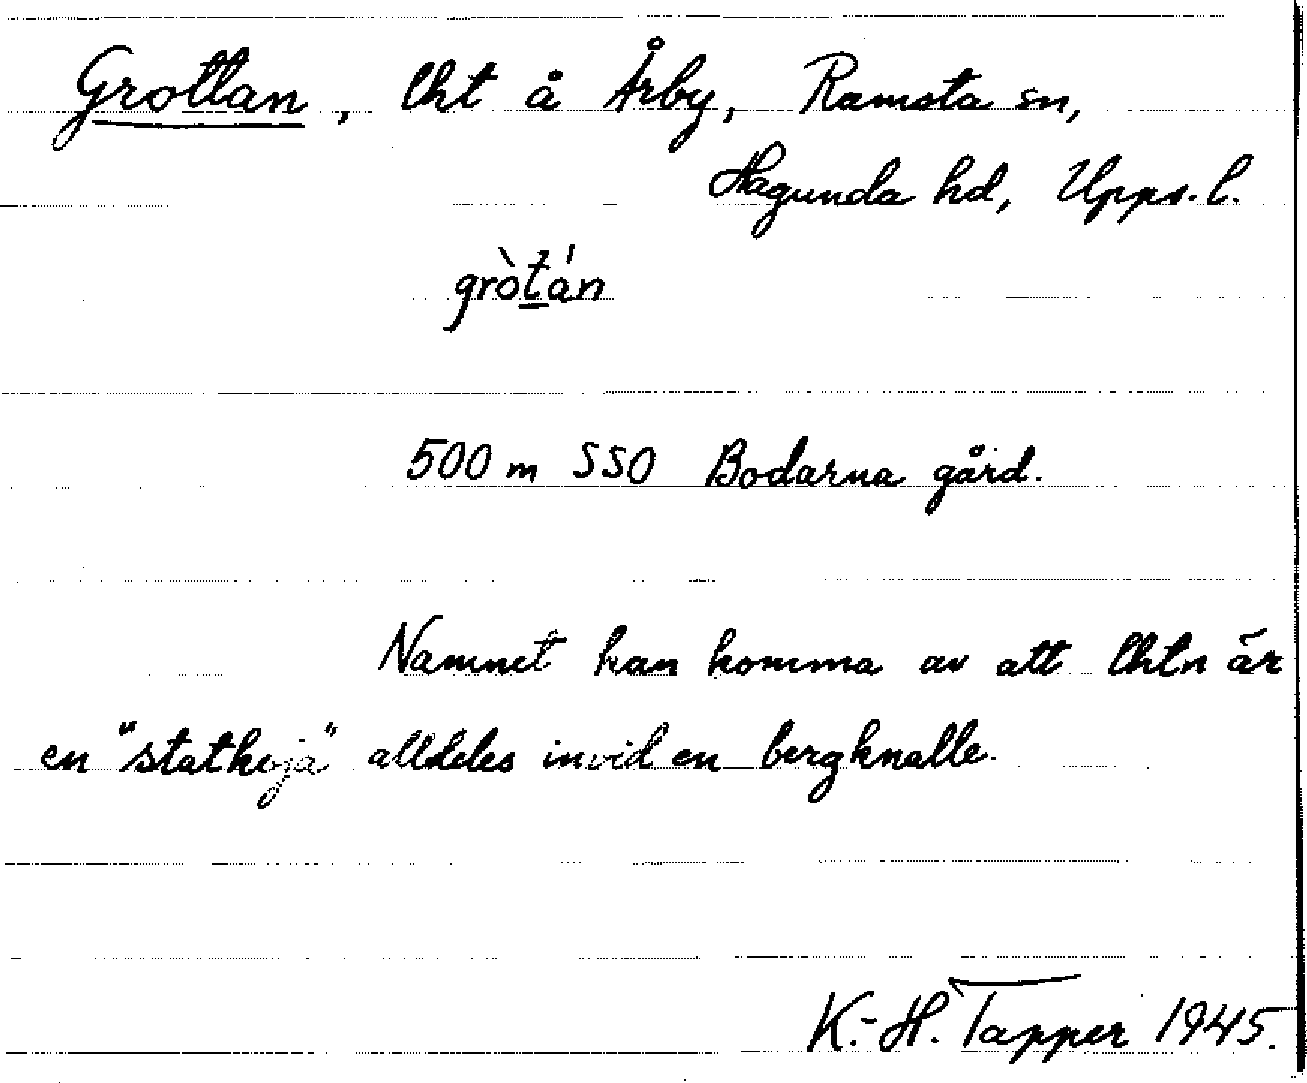 Grottan, lht å Årby, Ramsta sn,
Hagunda hd, Upps. l.
gròt̲án
500 m SSO Bodarna gård.
Namnet kan komma av att lhtn är
en "statkoja" alldeles invid en bergknalle.
K.-H. Tapper 1945.